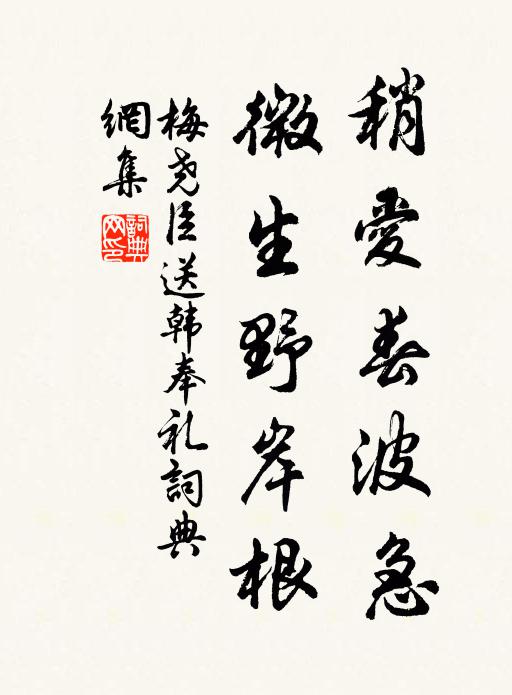 稍愛春波急
微生野岸根
梅尧臣送韩奉礼詞典
網集
詞典
网印